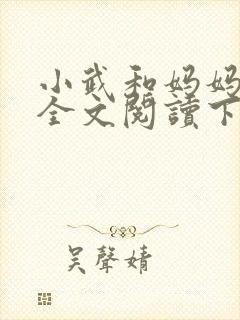 小武和妈妈
全文閱讀下
吴聲婧